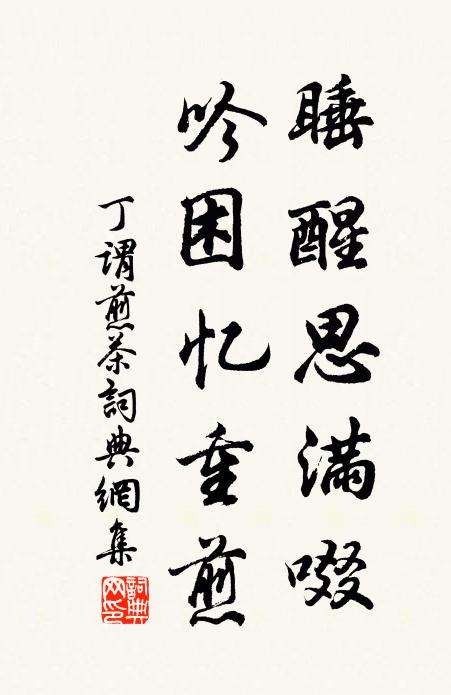 睡醒思满啜
吟困忆重煎
丁谓煎茶詞典網集
詞典網印